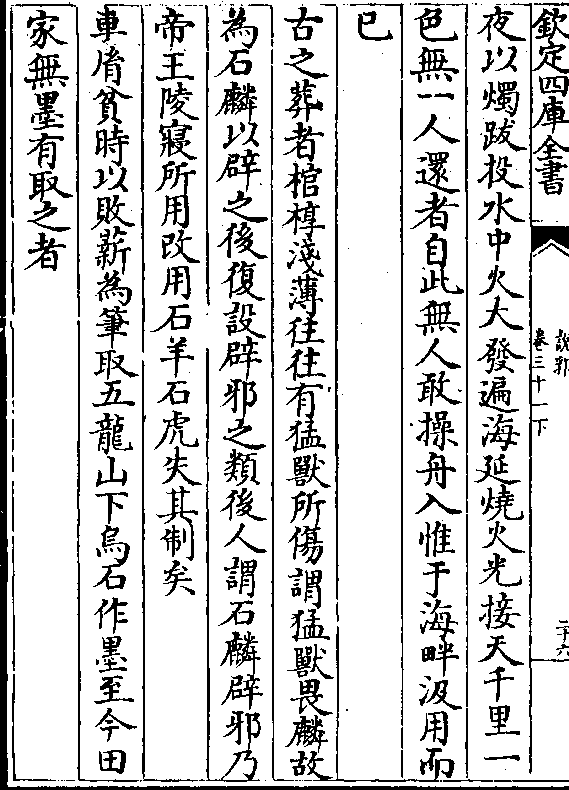 欽定四庫全書
說郛
卷三十一下
二十六
夜以燭跋投水中火大發遍海延燒火光接天千里一
色無一人還者自此無人敢操舟入惟于海畔汲用而
已
古之葬者棺椁淺薄往往有猛獸所傷謂猛獸畏麟故
為石麟以辟之後復設辟邪之類後人謂石麟辟邪乃
帝王陵寢所用改用石羊石虎失其制矣
車㣧貧時以敗薪為筆取五龍山下烏石作墨至今田
家無墨有取之者